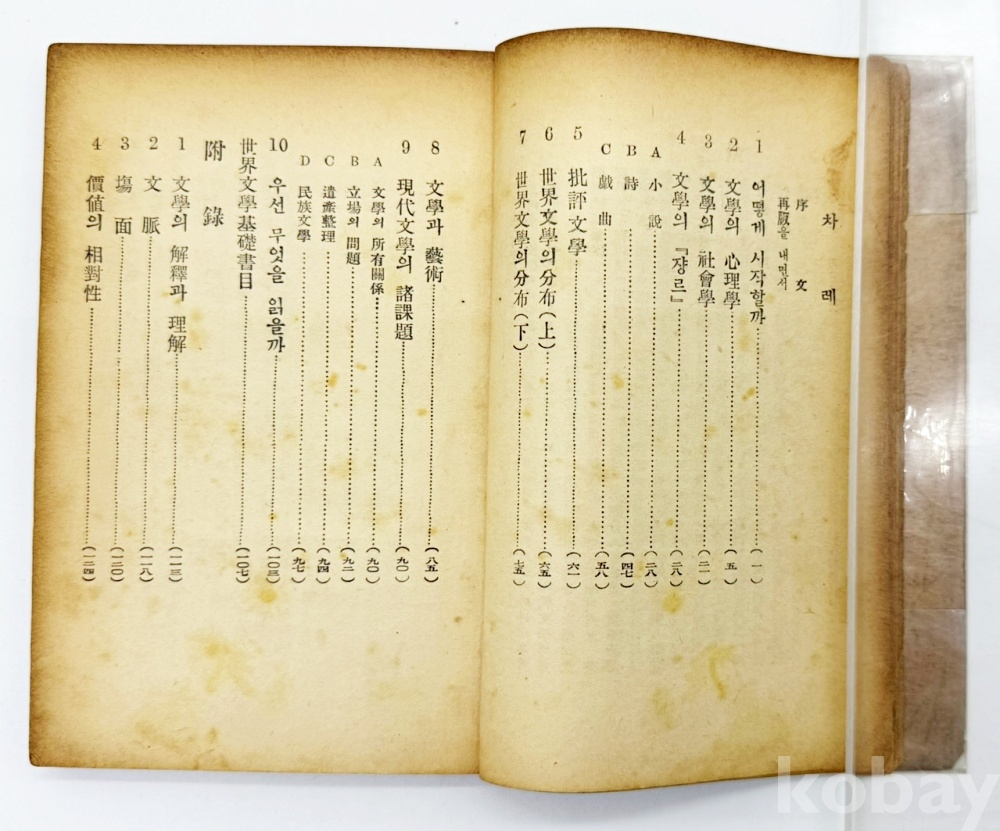 차 례
序 文
再版을 내면서
1 어떻게 시작할까 (一)
2 文學의 心理學 (五)
3 文學의 社會學 (二一)
4 文學의 『쟝르』 (二八)
A 小 說 (二八)
B 詩 (四七)
C 戱 曲 (五八)
5 批評文學 (六一)
6 世界文學의 分布(上) (六五)
7 世界文學의 分布(下) (七五)
8 文學과 藝術 (八五)
9 現代文學의 諸課題 (九〇)
A 文學의 所有關係 (九〇)
B 立場의 問題 (九二)
C 遺產整理 (九四)
D 民族文學 (九七)
10 우선 무엇을 읽을까 (一〇三)
世界文學基礎書目 (一〇七)
附 錄
1 文學의 解釋과 理解 (一一三)
2 文 脈 (一一八)
3 場 面 (一二〇)
4 價値의 相對性 (一二四)
kobay